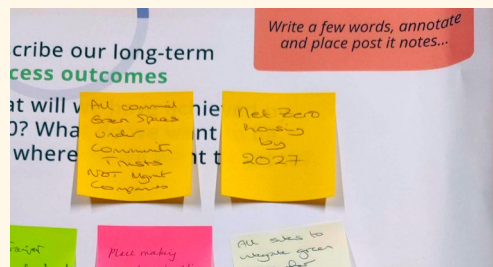 Write a few words, annotate
and place post it notes...
cribe our long-term
cess outcomes
at will w
hie
0? Wha
nt
where
t t
All communal
Green Spaces
under
Community
Trusts
NOT Mgmt
Companies
Net Zero
housing
by
2027
Place making
All sites to
integrate green
for